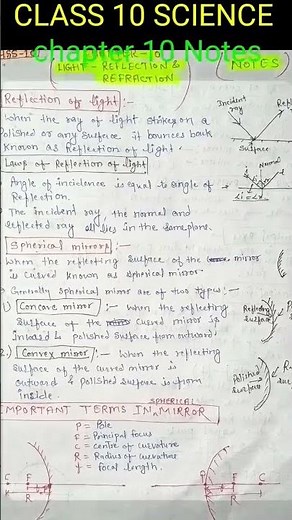 CLASS 10 SCIENCE
chapter 10 Notes
LIGHT - REFLECTION &
REFRACTION
NOTES
Reflection of light :-
When the ray of light strikes on a
Polished or any surface it bounces back
known as Reflection of light.
Incident
ray
Surface
Laws of Reflection of light
Angle of incidence is equal to angle of
Reflection.
The incident ray, the normal and
reflected ray all lies in the same plane.
∠i=∠r
Spherical mirrors :-
When the reflecting surface of the mirror
is curved known as spherical mirror.
Generally spherical mirror are of two types :-
1) Concave mirror :- When the reflecting
surface of the curved mirror is
inward & polished surface from outward.
Reflecting
surface
2) Convex mirror :- When the reflecting
surface of the curved mirror is
outward & Polished surface is from
inside.
Polished
surface
SPHERICAL
IMPORTANT TERMS IN MIRROR
P = Pole
F = Principal focus
C = centre of curvature
R = Radius of curvature
f = focal length.
C F P
R
P F C
R